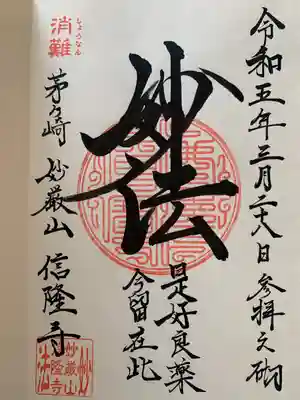 令和五年三月二十八日 参拝之砌
是好良薬
今留在此
妙法
消難
しょうなん
茅ヶ崎 妙厳山 信隆寺
妙厳山
信隆寺